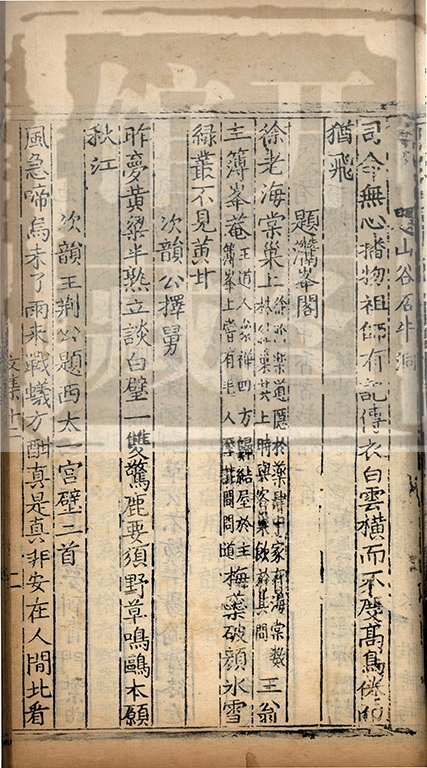 山谷石牛洞
司命無心播物祖師有記傳衣白雲橫而不度高鳥倦而
猶飛
題灊峯閣
徐老海棠巢上徐樂道隱於藥肆中家有海棠數株結巢其上時與客巢飲於其間王翁
主簿峯菴王道人參禪四方歸結屋於主簿峯上嘗有毛人至其間問道梅蘂破顏冰雪
綠叢不見黃甘
次韻公擇舅
昨夢黃粱半熟立談白璧一雙驚鹿要須野草鳴鷗本願
秋江
次韻王荊公題西太一宮壁二首
風急啼烏未了雨來戰蟻方酣真是真非安在人間北看
文集十二
二